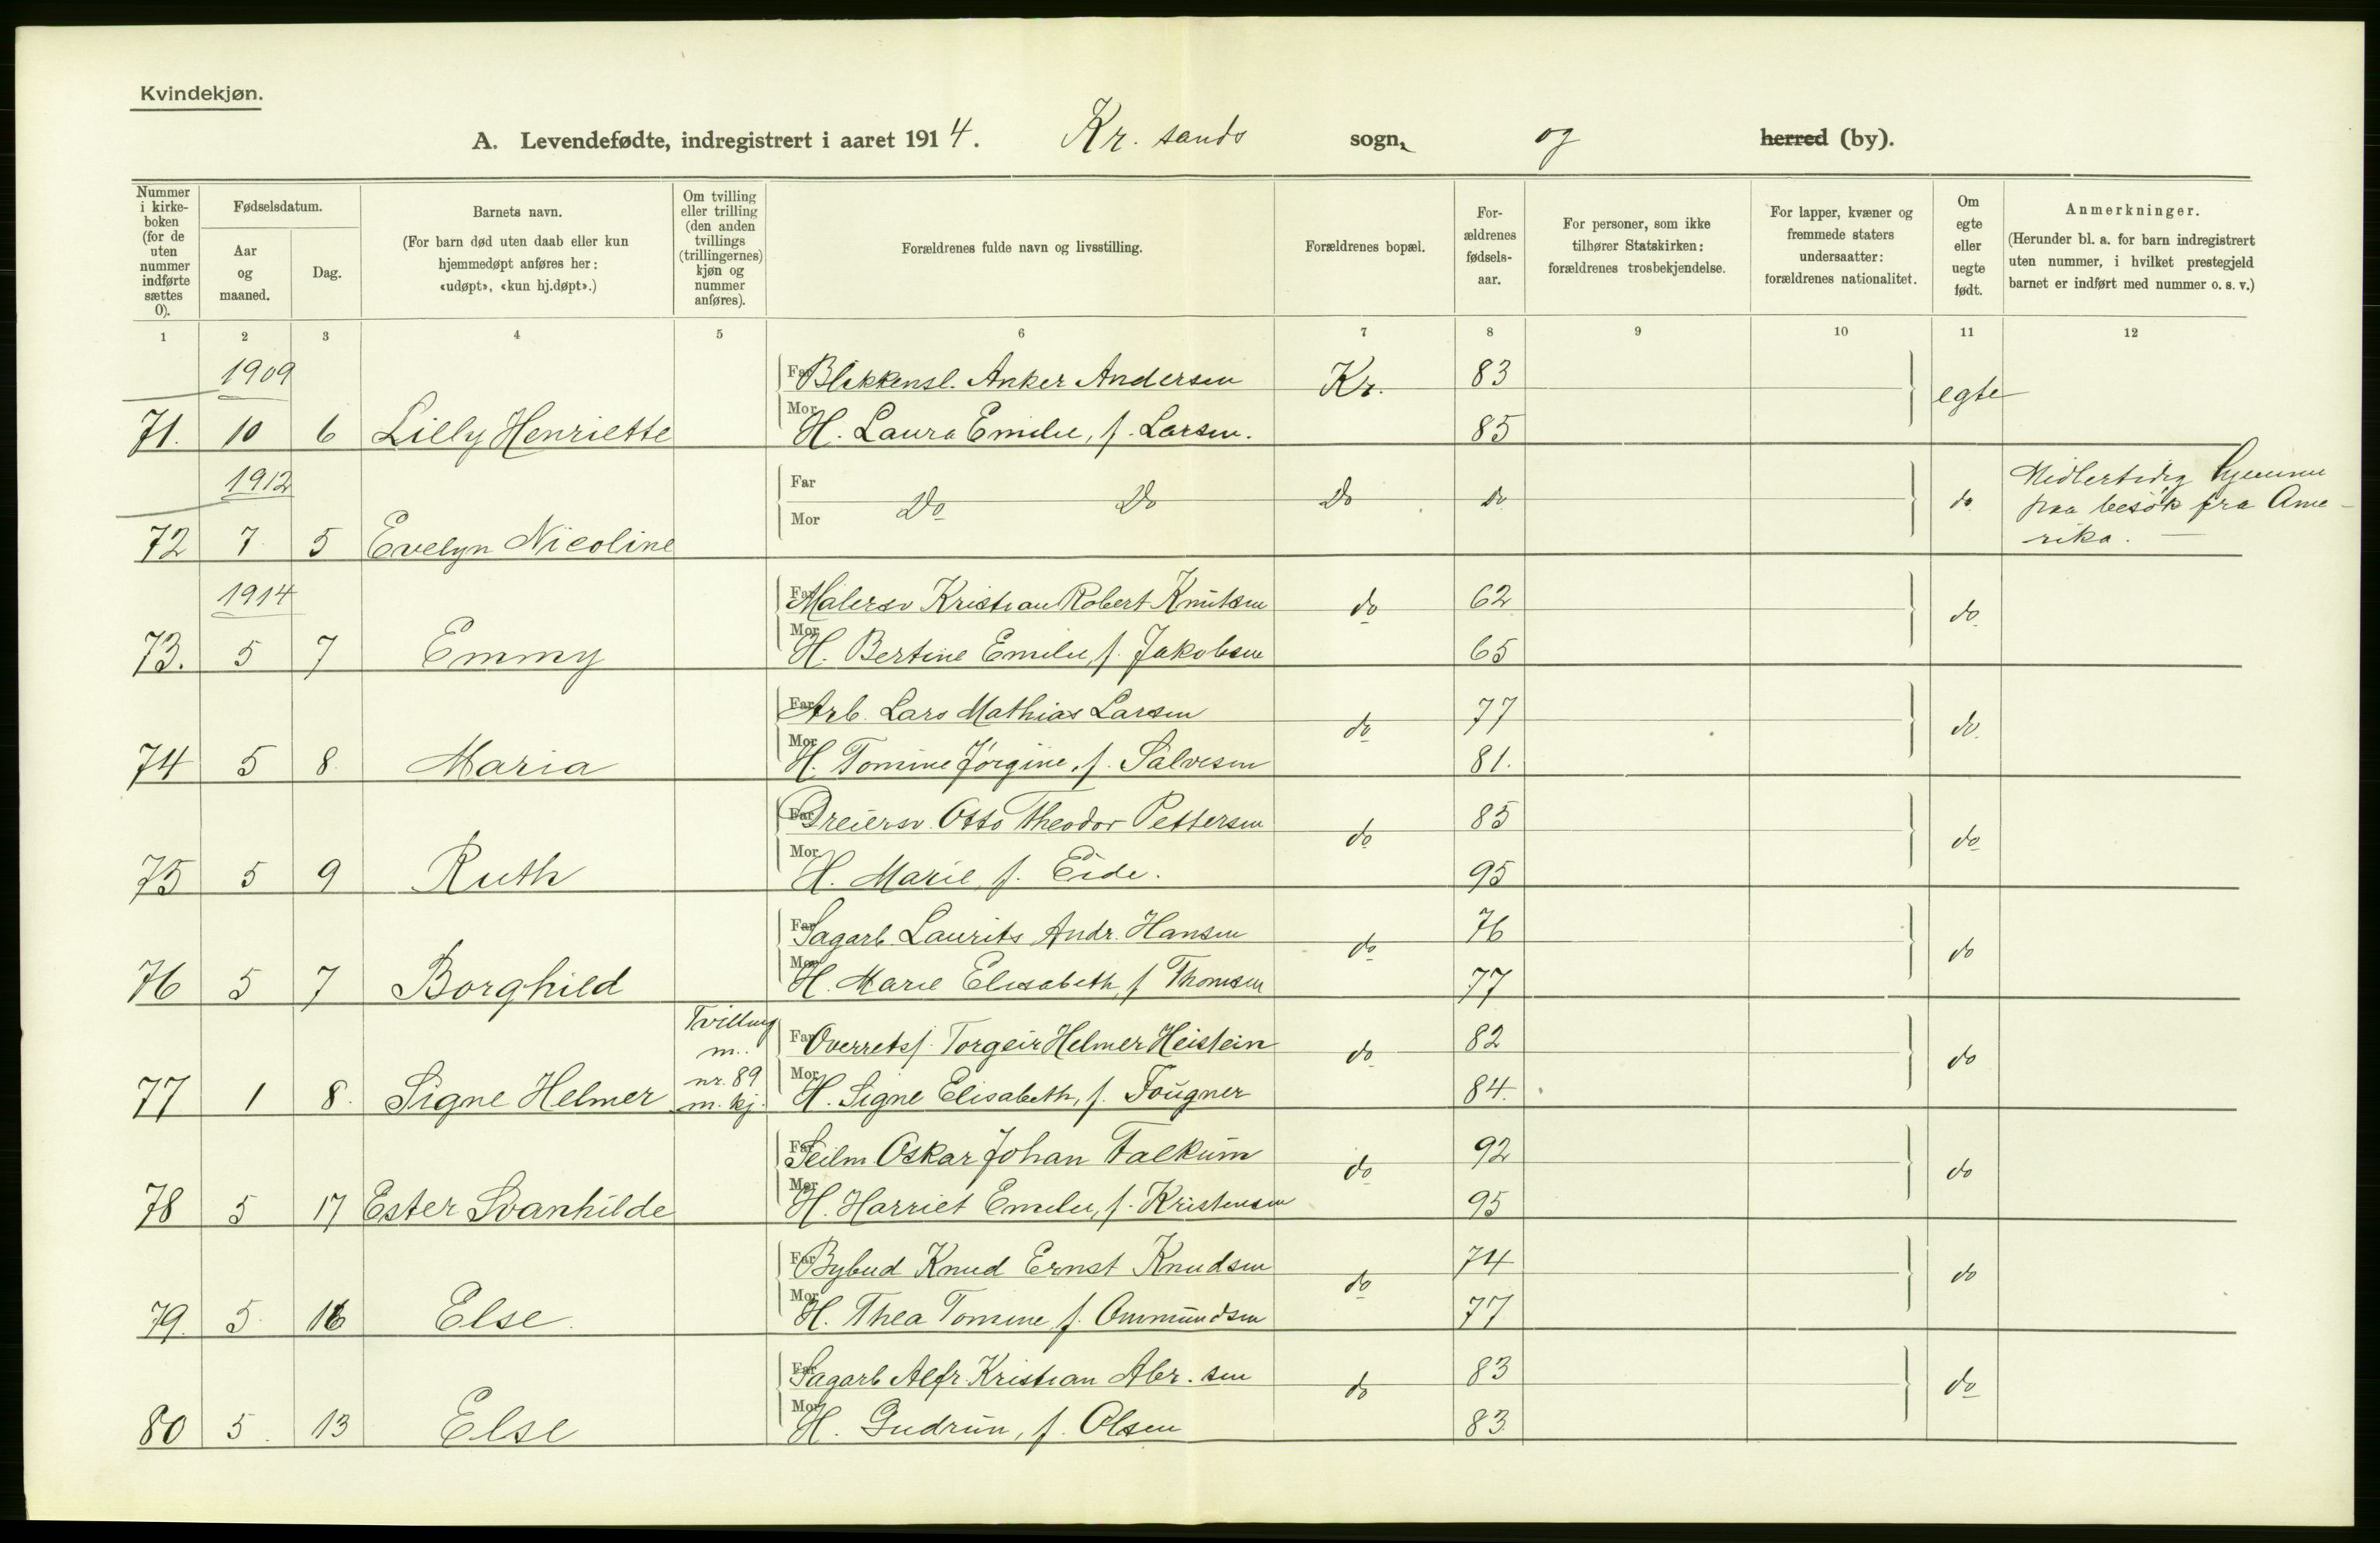 Kvindekjøn.
A. Levendefødte, indregistrert i aaret 1914. Kr. sands sogn, og herred (by).
Nummer i kirkeboken (for de uten nummer indførte sættes 0).
Fødselsdatum.
Aar og maaned.
Dag.
Barnets navn.
(For barn død uten daab eller kun hjemmedøpt anføres her: «udøpt», «kun hj.døpt».)
Om tvilling eller trilling (den anden tvillings (trillingernes) kjøn og nummer anføres).
Forældrenes fulde navn og livsstilling.
Forældrenes bopæl.
Forældrenes fødselsaar.
For personer, som ikke tilhører Statskirken: forældrenes trosbekjendelse.
For lapper, kvæner og fremmede staters undersaatter: forældrenes nationalitet.
Om egte eller uegte født.
Anmerkninger.
(Herunder bl. a. for barn indregistrert uten nummer, i hvilket prestegjeld barnet er indført med nummer o. s. v.)
1 2 3 4 5 6 7 8 9 10 11 12
1909 Far Blikkensl. Anker Andersen Kr. 83 egte
71. 10 6 Lilly Henriette Mor H. Laura Emilie, f. Larsen. 85
1912 Far Do Do Do do do Midlertidig hjemme
Mor paa besøk fra Ame-
72 7 5 Evelyn Nicoline rika.
1914 Far Malersv Kristian Robert Knutsen do 62 do
73. 5 7 Emmy Mor H. Bertine Emilie f. Jakobsen 65
Far Arb. Lars Mathias Larsen do 77 do
74 5 8 Maria Mor H. Tomine Jørgine, f. Salvesen 81.
Far Dreiersv. Otto Theodor Pettersen do 85 do
75 5 9 Ruth Mor H. Marie, f. Eide. 95
Far Sagarb. Laurits Andr. Hansen do 76 do
76 5 7 Borghild Mor H. Marie Elisabeth, f Thomsen 77
Tvilling
m. Far Overretssf. Torgeir Helmer Heistein do 82 do
nr. 89
77 1 8. Signe Helmer m. kj. Mor H. Signe Elisabeth, f. Fougner 84.
Far Seilm Oskar Johan Falkum do 92 do
78 5 17 Ester Svanhilde Mor H. Harriet Emilie, f. Kristensen 95
Far Bybud Knud Ernst Knudsen do 74 do
79. 5. 16 Else. Mor H. Thea Tomine f. Ommundsen 77
Far Sagarb Alfr. Kristian Abr.sen do 83 do
80 5. 13 Else Mor H. Gudrun, f. Olsen 83